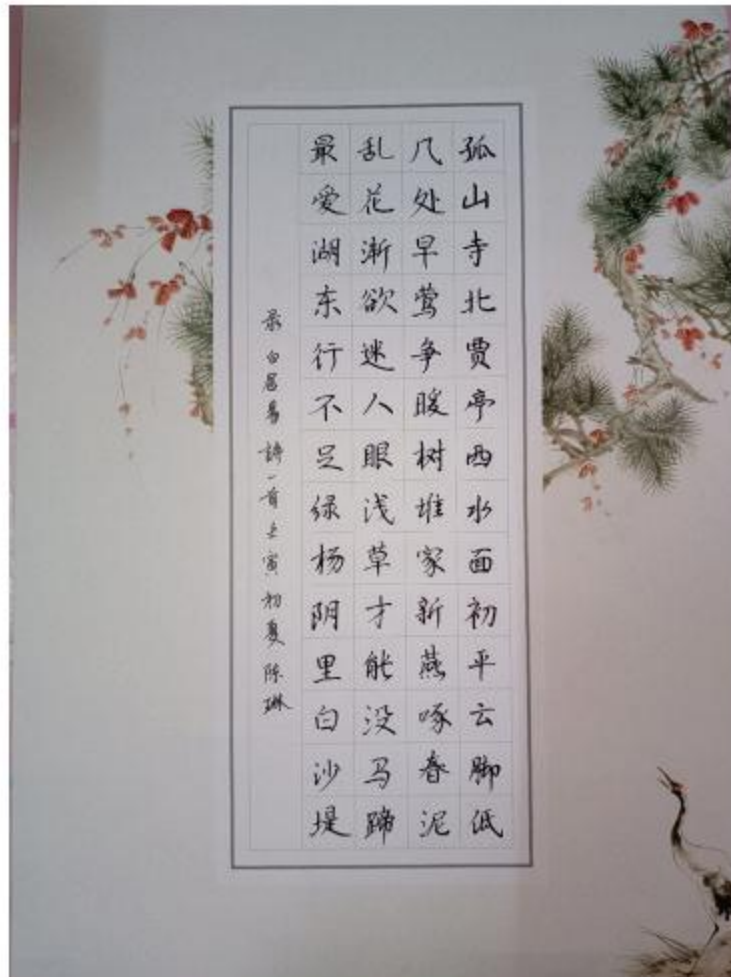 孤山寺北贾亭西水面初平云脚低
几处早莺争暖树堆家新燕啄春泥
乱花渐欲迷人眼浅草才能没马蹄
最爱湖东行不足绿杨阴里白沙堤
录白居易詩一首壬寅初夏陈琳